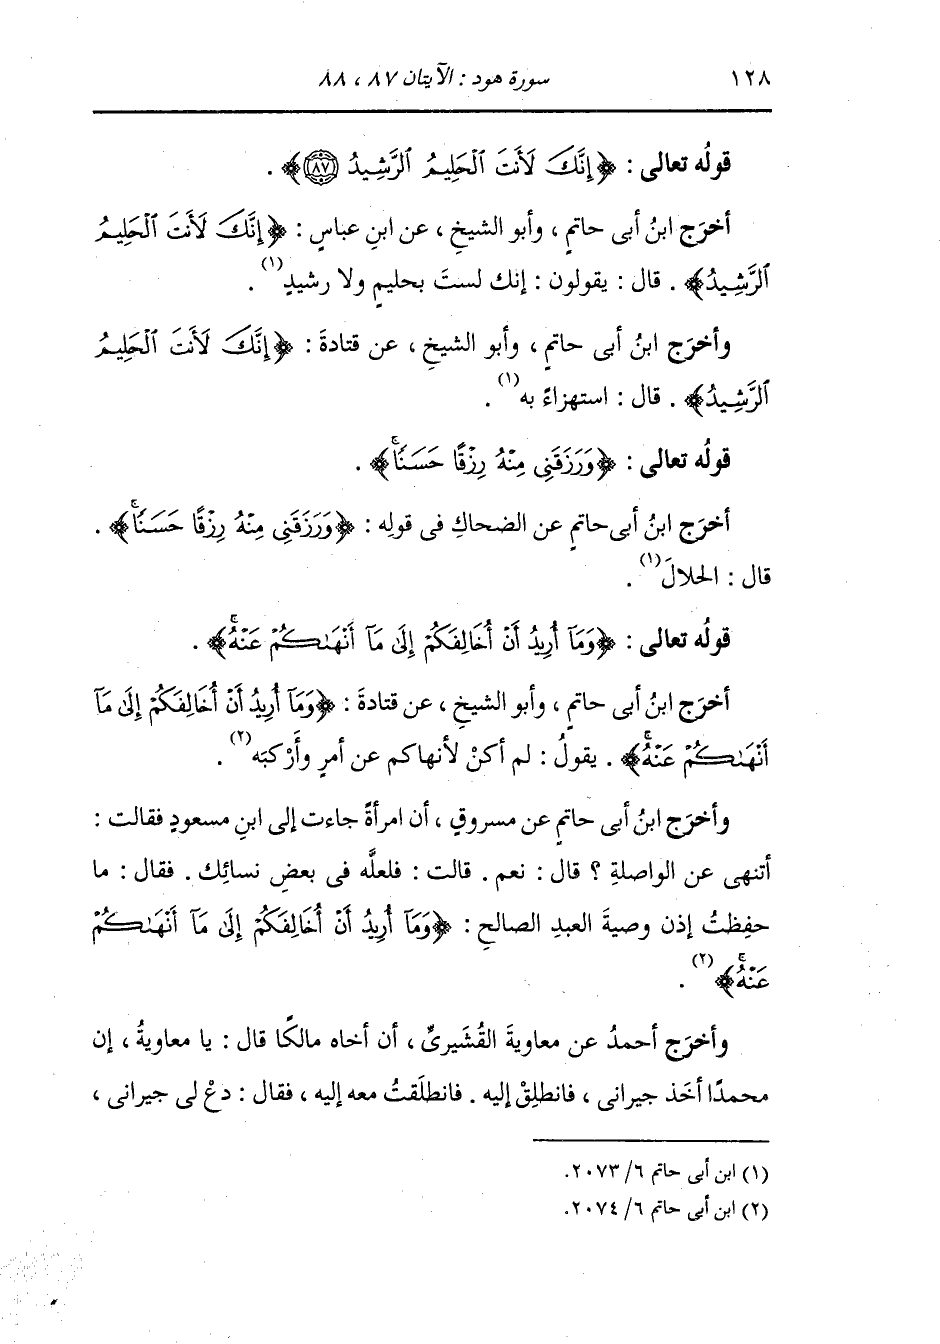 ١٢٨ سورة هود : الآيتان ٨٧ ، ٨٨
قولُه تعالى : ﴿إِنَّكَ لَأَنتَ ٱلْحَلِيمُ ٱلرَّشِيدُ ٨٧﴾ .
أخرَج ابنُ أبى حاتمٍ ، وأبو الشيخِ ، عن ابنِ عباسٍ : ﴿إِنَّكَ لَأَنتَ ٱلْحَلِيمُ
ٱلرَّشِيدُ﴾ . قال : يقولون : إنك لستَ بحليمٍ ولا رشيدٍ(١) .
وأخرَج ابنُ أبى حاتمٍ ، وأبو الشيخِ ، عن قتادةَ : ﴿إِنَّكَ لَأَنتَ ٱلْحَلِيمُ
ٱلرَّشِيدُ﴾ . قال : استهزاءً به(١) .
قولُه تعالى : ﴿وَرَزَقَنِى مِنْهُ رِزْقًا حَسَنًاۚ﴾ .
أخرَج ابنُ أبى حاتمٍ عن الضحاكِ فى قولِه : ﴿وَرَزَقَنِى مِنْهُ رِزْقًا حَسَنًاۚ﴾ .
قال : الحلالَ(١) .
قولُه تعالى : ﴿وَمَآ أُرِيدُ أَنْ أُخَالِفَكُمْ إِلَىٰ مَآ أَنْهَىٰكُمْ عَنْهُۚ﴾ .
أخرَج ابنُ أبى حاتمٍ ، وأبو الشيخِ ، عن قتادةَ : ﴿وَمَآ أُرِيدُ أَنْ أُخَالِفَكُمْ إِلَىٰ مَآ
أَنْهَىٰكُمْ عَنْهُۚ﴾ . يقولُ : لم أكنْ لأنهاكم عن أمرٍ وأَرْكبَه(٢) .
وأخرَج ابنُ أبى حاتمٍ عن مسروقٍ ، أن امرأةً جاءت إلى ابنِ مسعودٍ فقالت :
أتنهى عن الواصلةِ ؟ قال : نعم . قالت : فلعلَّه فى بعضِ نسائِك . فقال : ما
حفِظتُ إذن وصيةَ العبدِ الصالحِ : ﴿وَمَآ أُرِيدُ أَنْ أُخَالِفَكُمْ إِلَىٰ مَآ أَنْهَىٰكُمْ
عَنْهُۚ﴾(٢) .
وأخرَج أحمدُ عن معاويةَ القُشَيرىِّ ، أن أخاه مالكًا قال : يا معاويةُ ، إن
محمدًا أخَذ جيرانى ، فانطلِقْ إليه . فانطلَقتُ معه إليه ، فقال : دعْ لى جيرانى ،
(١) ابن أبى حاتم ٦/ ٢٠٧٣.
(٢) ابن أبى حاتم ٦/ ٢٠٧٤.